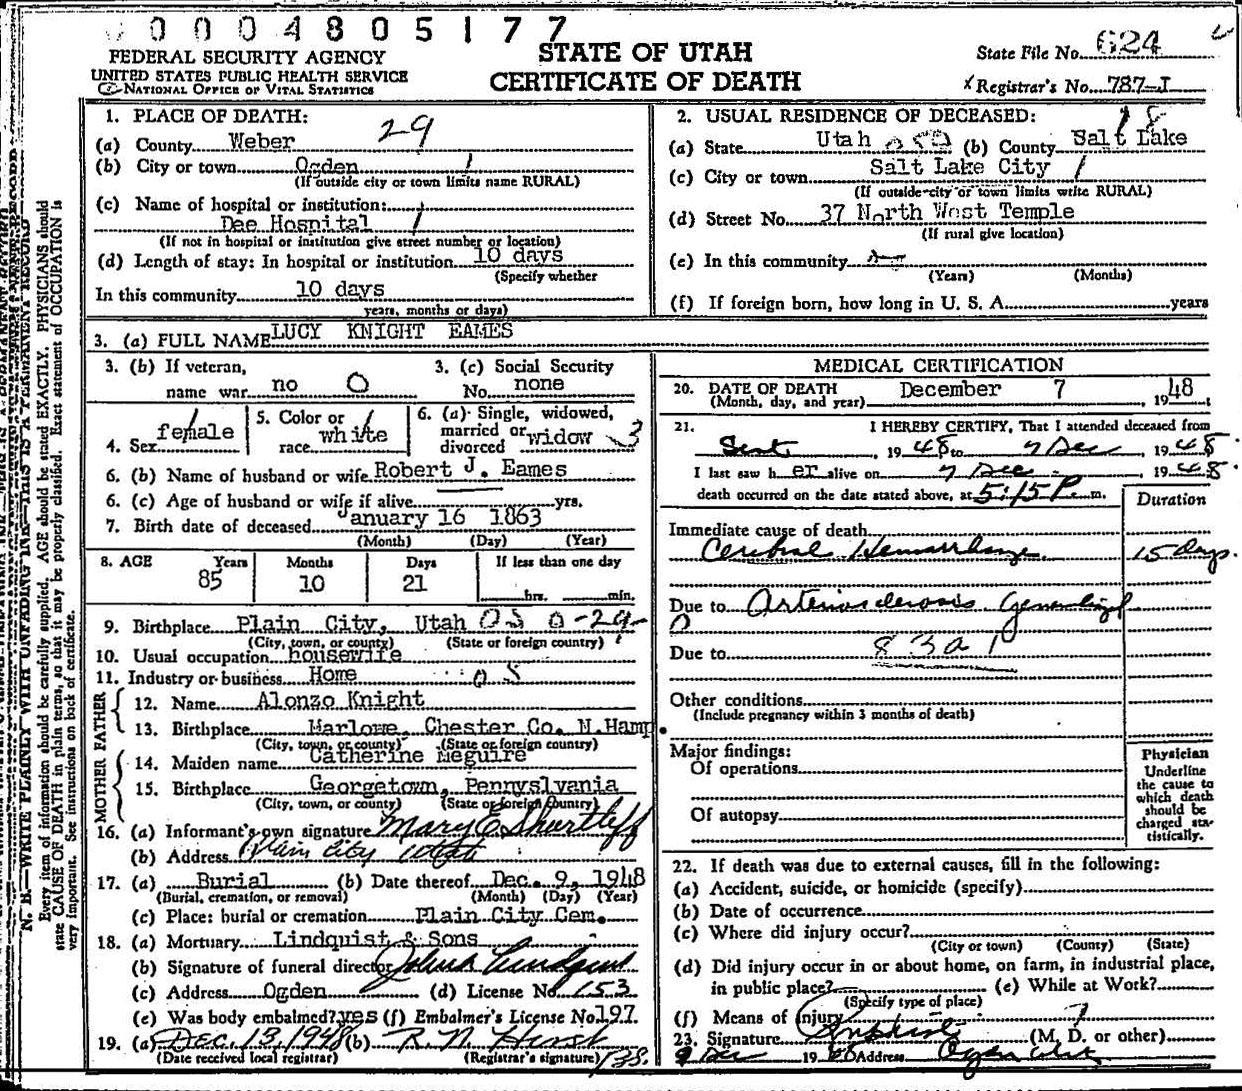 0004805177
FEDERAL SECURITY AGENCY
UNITED STATES PUBLIC HEALTH SERVICE
NATIONAL OFFICE OF VITAL STATISTICS
STATE OF UTAH
CERTIFICATE OF DEATH
State File No. 624
Registrar's No. 787-J
N. B.—WRITE PLAINLY WITH UNFADING INK—THIS IS A PERMANENT RECORD
Every item of information should be carefully supplied. AGE should be stated EXACTLY. PHYSICIANS should
state CAUSE OF DEATH in plain terms, so that it may be properly classified. Exact statement of OCCUPATION is
very important. See instructions on back of certificate.
1. PLACE OF DEATH:
29
(a) County Weber
(b) City or town Ogden
(If outside city or town limits name RURAL)
(c) Name of hospital or institution:
Dee Hospital
(If not in hospital or institution give street number or location)
(d) Length of stay: In hospital or institution 10 days
(Specify whether
In this community 10 days
years, months or days)
2. USUAL RESIDENCE OF DECEASED:
18
(a) State Utah (b) County Salt Lake
(c) City or town Salt Lake City
(If outside city or town limits write RURAL)
(d) Street No. 37 North West Temple
(If rural give location)
(e) In this community
(Years) (Months)
(f) If foreign born, how long in U. S. A. years
3. (a) FULL NAME LUCY KNIGHT EAMES
3. (b) If veteran,
name war no 0
3. (c) Social Security
No. none
4. Sex female
5. Color or
race white
6. (a) Single, widowed,
married or
divorced widow 3
6. (b) Name of husband or wife Robert J. Eames
6. (c) Age of husband or wife if alive yrs.
7. Birth date of deceased January 16 1863
(Month) (Day) (Year)
8. AGE Years Months Days If less than one day
85 10 21 hrs. min.
9. Birthplace Plain City, Utah
(City, town, or county) (State or foreign country)
10. Usual occupation housewife
11. Industry or business Home
FATHER
12. Name Alonzo Knight
13. Birthplace Marlowe, Chester Co. N.Hamp.
(City, town, or county) (State or foreign country)
MOTHER
14. Maiden name Catherine Meguire
15. Birthplace Georgetown, Pennyslvania
(City, town, or county) (State or foreign country)
16. (a) Informant's own signature Mary E Shurtleff
(b) Address Plain City Utah
17. (a) Burial (b) Date thereof Dec. 9, 1948
(Burial, cremation, or removal) (Month) (Day) (Year)
(c) Place: burial or cremation Plain City Cem.
18. (a) Mortuary Lindquist & Sons
(b) Signature of funeral director Lindquist
(c) Address Ogden (d) License No. 153
(e) Was body embalmed? yes (f) Embalmer's License No. 197
19. (a) Dec. 13, 1948 (b) R. N. Hirst
(Date received local registrar) (Registrar's signature)
MEDICAL CERTIFICATION
20. DATE OF DEATH December 7 1948
(Month, day, and year)
21. I HEREBY CERTIFY, That I attended deceased from
Sept, 1948 to 7 Dec, 1948
I last saw h er alive on 7 Dec, 1948
death occurred on the date stated above, at 5:15 P. m.
Duration
Immediate cause of death
Cerebral Hemorrhage 15 days.
Due to Arteriosclerosis Generalized
Due to 83a1
Other conditions
(Include pregnancy within 3 months of death)
Major findings:
Of operations
Of autopsy
Physician
Underline
the cause to
which death
should be
charged sta-
tistically.
22. If death was due to external causes, fill in the following:
(a) Accident, suicide, or homicide (specify)
(b) Date of occurrence
(c) Where did injury occur?
(City or town) (County) (State)
(d) Did injury occur in or about home, on farm, in industrial place,
in public place? (e) While at Work?
(Specify type of place)
(f) Means of injury
23. Signature (M. D. or other)
9 Dec 19 Address Ogden Utah